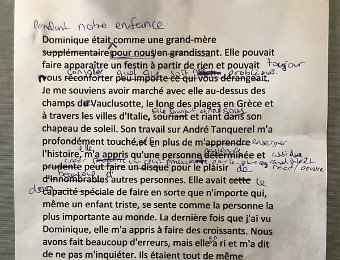 Pendant notre enfance
Dominique était comme une grand-mère
supplémentaire pour nous en grandissant. Elle pouvait
faire apparaître un festin à partir de rien et pouvait toujour
vous réconforter peu importe ce qui vous dérangeait.
Je me souviens avoir marché avec elle au-dessus des
champs de Vauclusotte, le long des plages en Grèce et
à travers les villes d'Italie, souriant et riant dans son
chapeau de soleil. Son travail sur André Tanquerel m'a
profondément touché, et en plus de m'apprendre enseigner
l'histoire, m'a appris qu'une personne déterminée et
prudente peut faire un disque pour le plaisir de
d'innombrables autres personnes. Elle avait cette le
don
capacité spéciale de faire en sorte que n'importe qui,
même un enfant triste, se sente comme la personne la
plus importante au monde. La dernière fois que j'ai vu
Dominique, elle m'a appris à faire des croissants. Nous
avons fait beaucoup d'erreurs, mais elle a ri et m'a dit
de ne pas m'inquiéter. Ils étaient tout de même